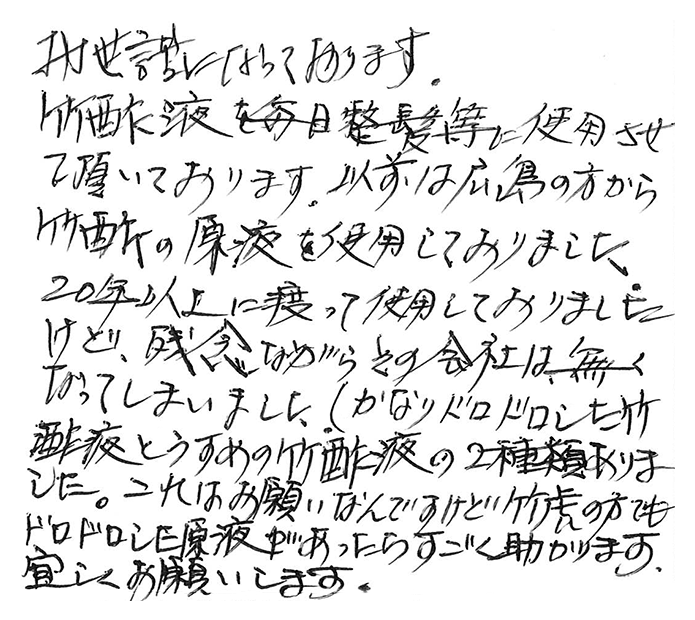 お世話になっております。
竹酢液を毎日整髪等に使用させ
て頂いております。以前は広島の方から
竹酢の原液を使用しておりました。
20年以上に渡って使用しておりました
けど、残念ながらその会社は無く
なってしまいました。(かなりドロドロした竹
酢液とうすめの竹酢液の2種類ありま
した。これはお願いなんですけど竹虎の方でも
ドロドロした原液があったらすごく助かります。
宜しくお願いします。